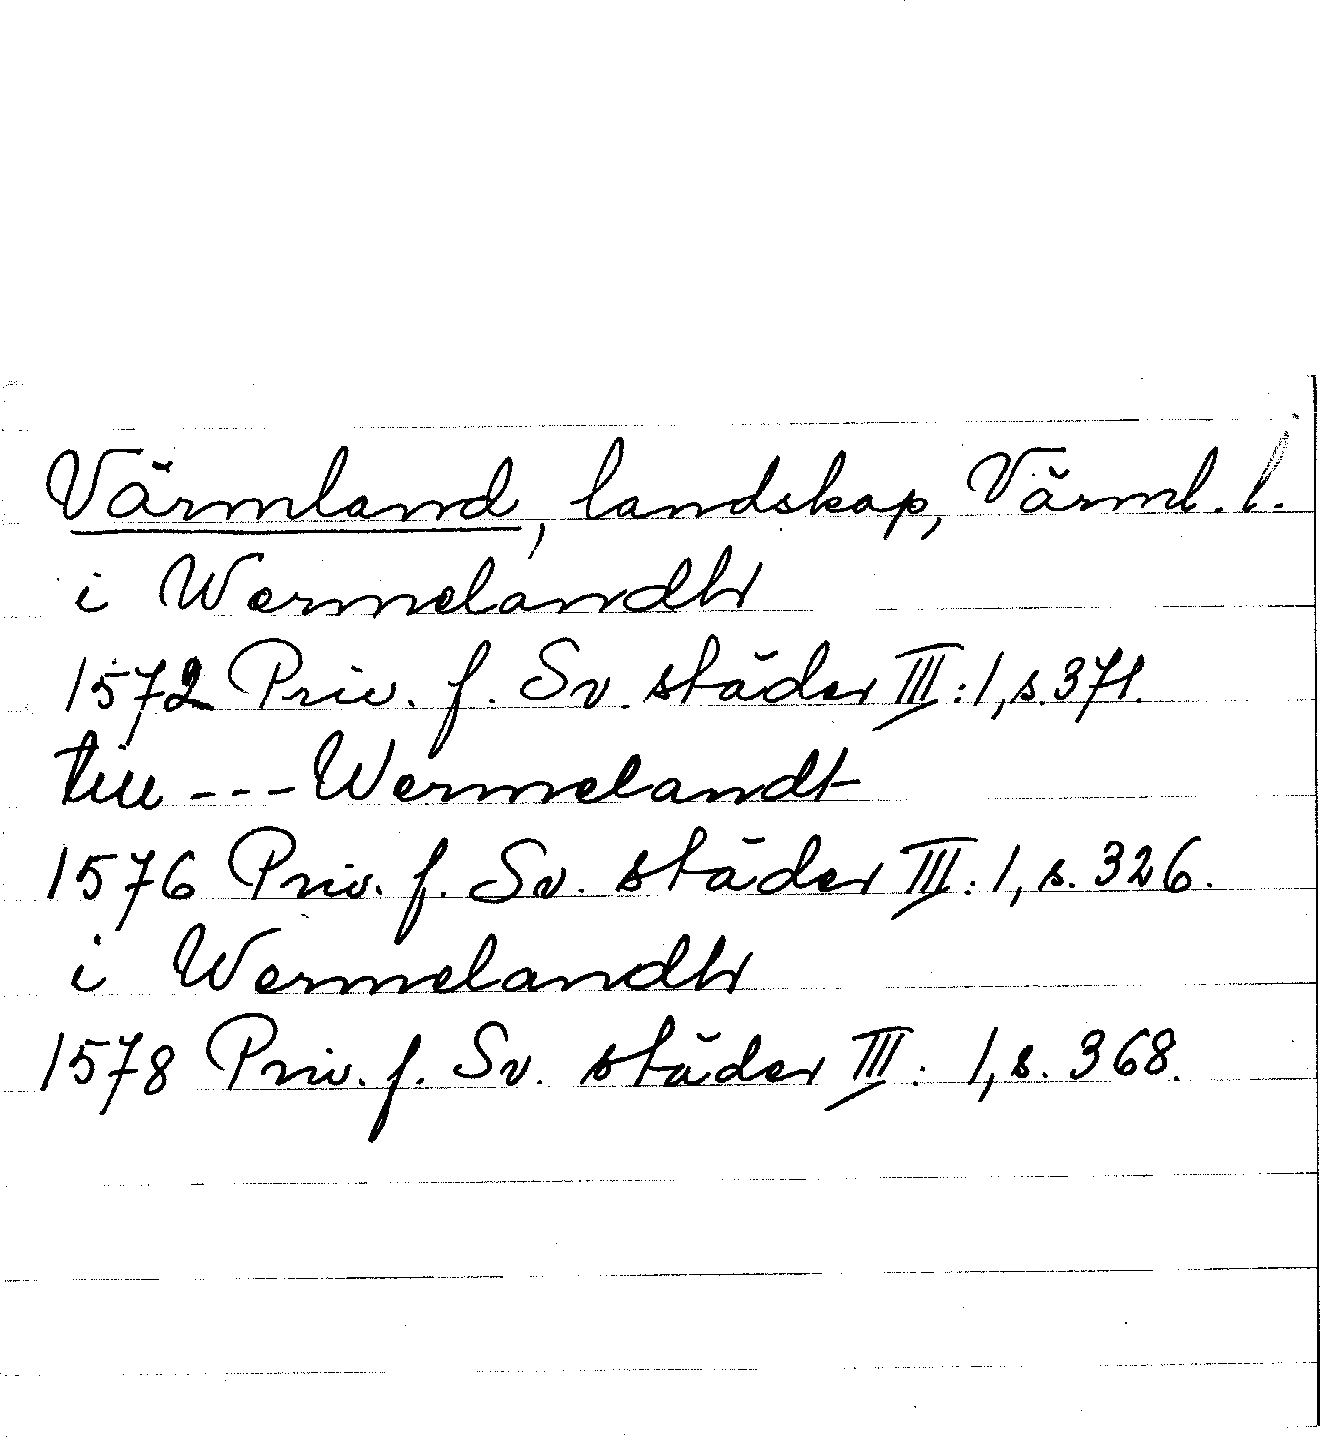 Värmland, landskap, Värml. l.
i Wermelandh
1572 Priv. f. Sv. städer III: 1, s. 371.
till --- Wermelandt
1576 Priv. f. Sv. städer III: 1, s. 326.
i Wermelandh
1578 Priv. f. Sv. städer III: 1, s. 368.